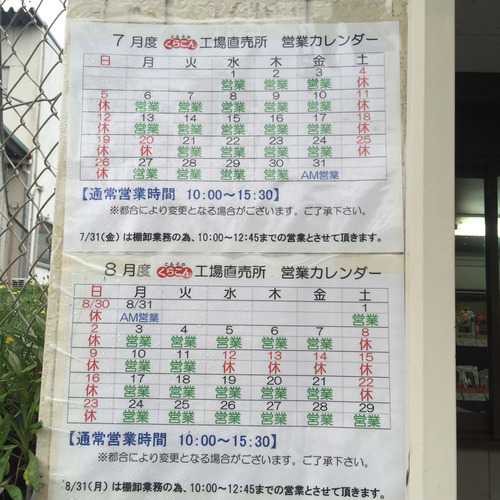 7月度 とんぶの くらこん 工場直売所 営業カレンダー
日 月 火 水 木 金 土
1 2 3 4
営業 営業 営業 休
5 6 7 8 9 10 11
休 営業 営業 営業 営業 営業 休
12 13 14 15 16 17 18
休 営業 営業 営業 営業 営業 休
19 20 21 22 23 24 25
休 休 営業 営業 営業 営業 休
26 27 28 29 30 31
休 営業 営業 営業 営業 AM営業
【通常営業時間 10:00～15:30】
※都合により変更となる場合がございます。ご了承下さい。
7/31(金)は棚卸業務の為、10:00～12:45までの営業とさせて頂きます。
8月度 くらこん 工場直売所 営業カレンダー
日 月 火 水 木 金 土
8/30 8/31 1
休 AM営業 営業
2 3 4 5 6 7 8
休 営業 営業 営業 営業 営業 休
9 10 11 12 13 14 15
休 営業 営業 休 休 休 休
16 17 18 19 20 21 22
休 営業 営業 営業 営業 営業 休
23 24 25 26 27 28 29
休 営業 営業 営業 営業 営業 営業
【通常営業時間 10:00～15:30】
※都合により変更となる場合がございます。ご了承下さい。
8/31(月)は棚卸業務の為、10:00～12:45までの営業とさせて頂きます。